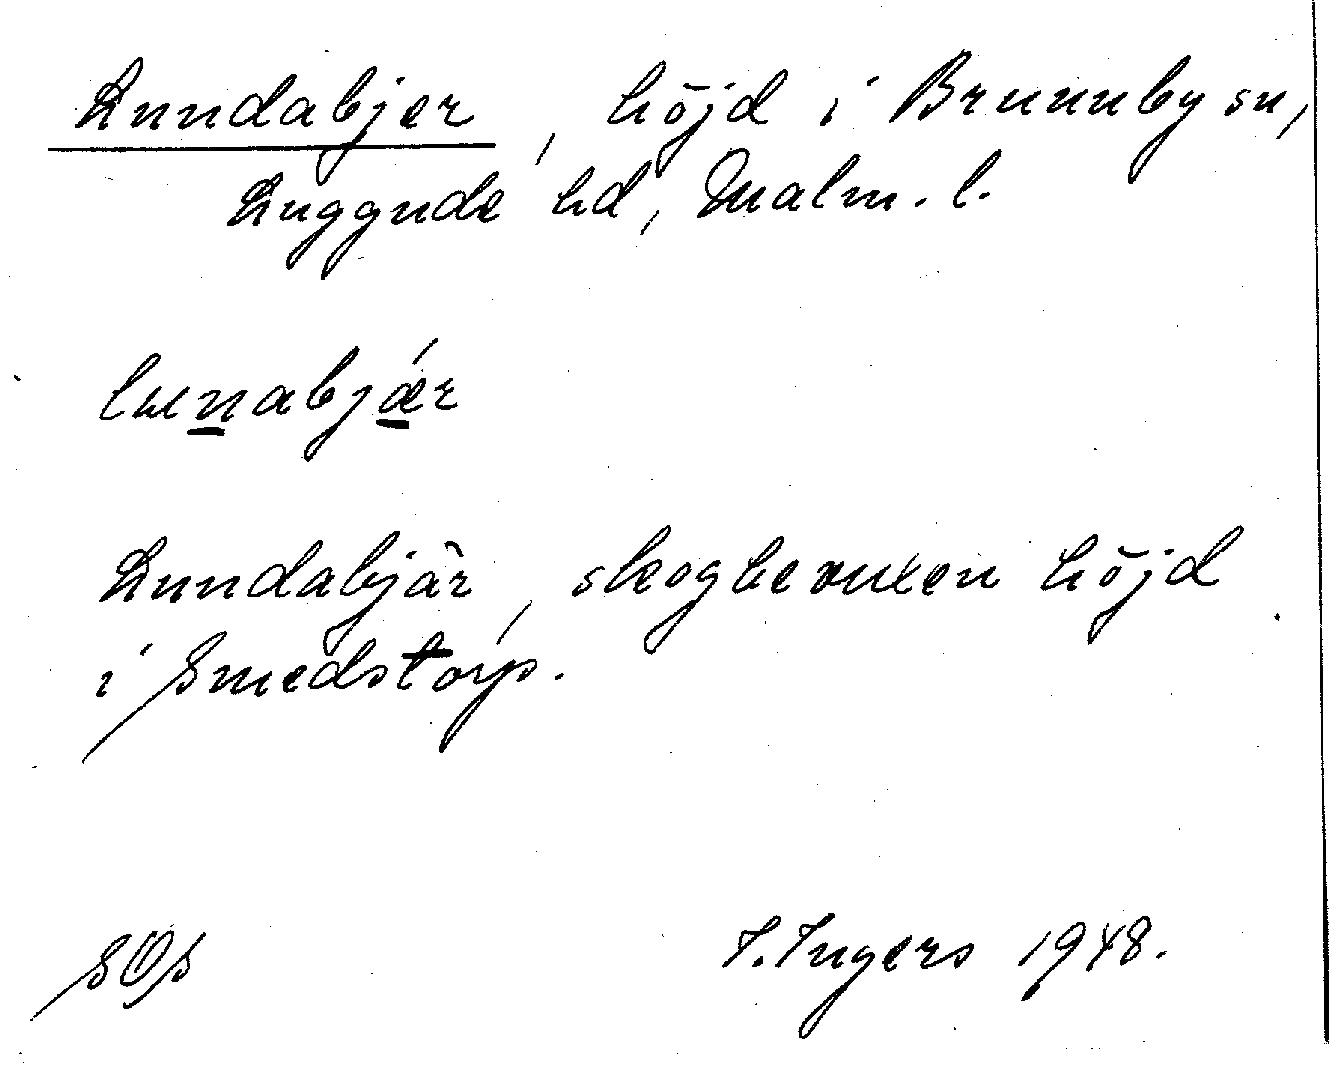 Lundabjer, höjd i Brunnby sn,
Luggude hd, Malm. l.
lunabjǽr
Lundabjär, skogbevuxen höjd
i Smedstorp.
SOS I. Ingers 1948.